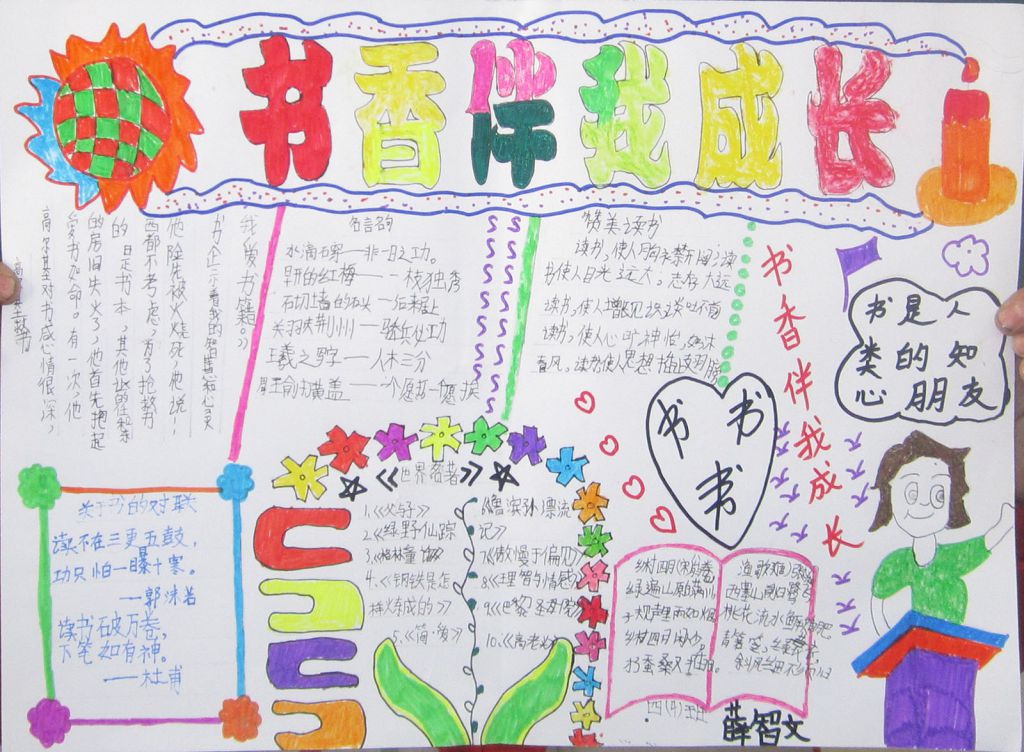 书香伴我成长
我爱书籍。》
他险先被火烧死，他说：
西都不考虑，为了抢救
的日是书本，其他
的房旧失火，他首先抱起
爱书如命。有一次，他
高尔基对书感心情很深，
名言名句
水滴石穿——非一日之功。
早开的红梅——一枝独秀
石切墙的石头——后来居上
关羽失荆州——骄兵必功
王羲之写字——人木三分
周王俞打黄盖——一个愿打一愿挨
赞美读书
读书，使人目光远大，志存大远
读书，使人增长见识，谈吐不
读书，使人心旷神怡，
春风。读书使人思想插
书香伴我成长
书是人
类的知
心朋友
书 书
书
关于书的对联
读不在三更五鼓，
功只怕一曝十寒。
——郭沫若
读书破万卷，
下笔如有神。
——杜甫
《世界名著》
1.《父与子》
2.《绿野仙踪
3.《格林童话》
4.《钢铁是怎
样炼成的》
5.《简·爱》
6《鲁滨孙漂流
记》
7.《傲慢于偏见》
8.《理智与情感》
9.《巴黎圣母院》
10.《高老头》
乡村四月
绿遍山原
子规声里雨如烟
乡村四月闲少，
才蚕桑又插田。
渔歌
西塞山前白鹭
桃花流水鳜鱼肥
青箬笠，绿蓑衣，
斜风细雨不须归
四(4)班
薛智文